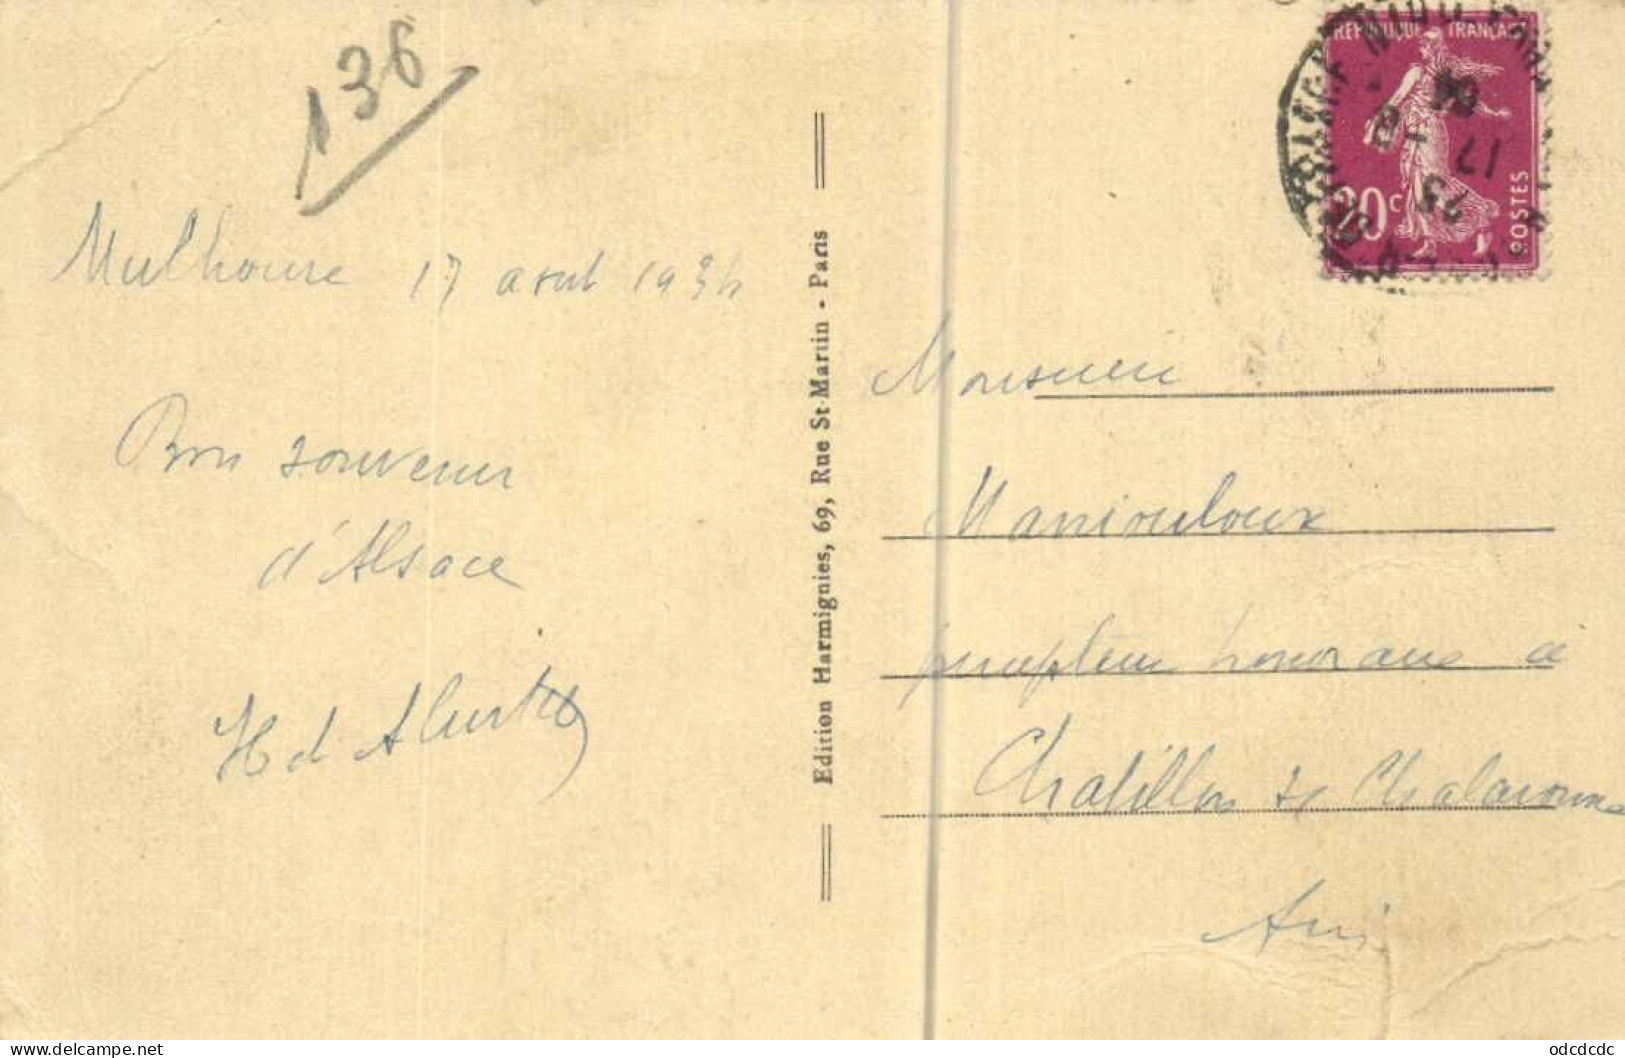 136
Mulhouse 17 aout 1934
Bon souvenir
d'Alsace
H d
Edition Harmignies, 69, Rue St-Martin - Paris
REPUBLIQUE FRANÇAISE
20c
POSTES
17 -8
34
Monsieur
percepteur honoraire à
Chatillon sr Chalaronne
Ain
odcdcdc